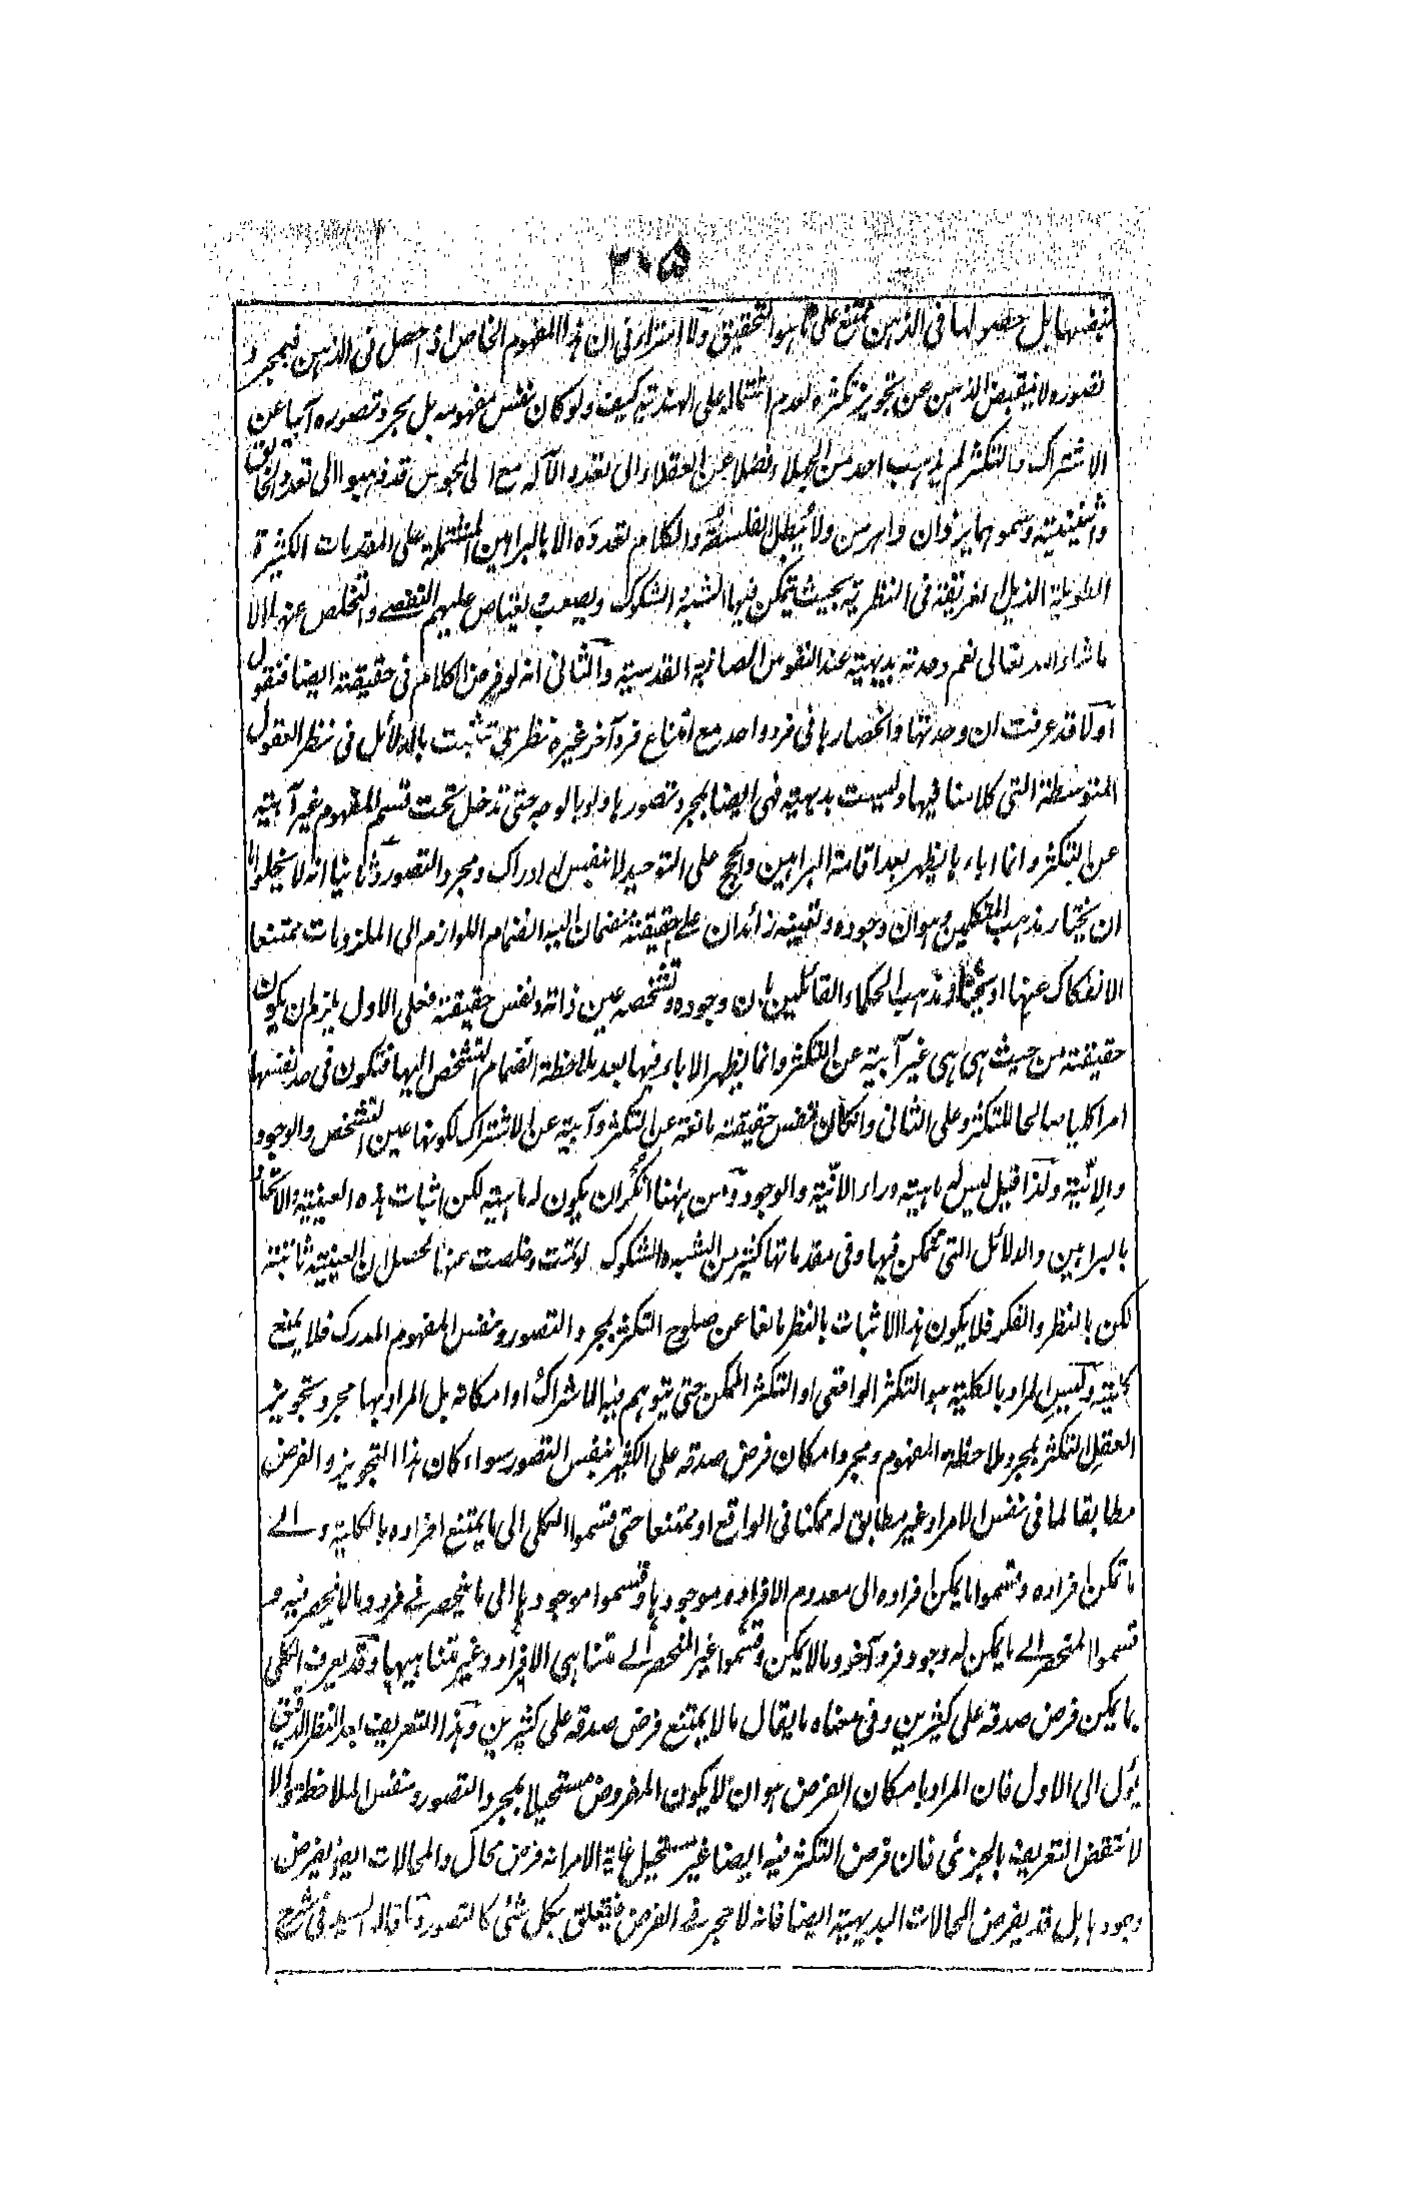 ٢٠٥
بنفسها بل حصولها فى الذهن ممتنع على ما هو التحقيق ولا امتراء فى ان هذا المفهوم الخاص اذا حصل فى الذهن فبمجرد
تصوره لا ينقبض الذهن عن تجويز تكثره لعدم اشتماله على الهذية كيف ولو كان نفس مفهومه بل بمجرد تصوره آبيا عن
الاشتراك والتكثر لم يذهب احد من الجهلاء فضلا عن العقلاء الى تعدد الآله مع ان المجوس قد ذهبوا الى تعدد الخالق
واثنينيته وسموهما يزدان واهرمن ولا يبطل الفلسفة والكلام تعدده الا بالبراهين المشتملة على المقدمات الكثيرة
الطويلة الذيل الغريقة فى النظرية بحيث يتمكن فيها الشبه والشكوك ويصعب ويعتاص عليهم التفصى والتخلص عنها الا
ما شاء الله تعالى نعم وحدته بديهية عند النفوس الصافية القدسية والثانى انه لو فرض الكلام فى حقيقته ايضا فنقول
اولا قد عرفت ان وحدتها وانحصارها فى فرد واحد مع امتناع فرد آخر غيره نظرى تثبت بالدلائل فى نظر العقول
المتوسطة التى كلامنا فيها وليست بديهية فهى ايضا بمجرد تصورها ولو بالوجه حتى تدخل تحت قسم المفهوم غير آبية
عن التكثر وانما اباءها يظهر بعد اقامة البراهين والحجج على التوحيد لا بنفس الادراك ومجرد التصور وثانيا انه لا يخلو اما
ان يختار مذهب المتكلمين وهو ان وجوده وتعينه زائدان على حقيقته منضمان اليه انضمام اللوازم الى الملزومات ممتنعا
الانفكاك عنها او يختار مذهب الحكماء القائلين بان وجوده وتشخصه عين ذاته ونفس حقيقته فعلى الاول يلزم ان يكون
حقيقته من حيث هى هى غير آبية عن التكثر وانما يظهر الاباء فيها بعد ملاحظة انضمام التشخص اليها فتكون فى حد نفسها
امرا كليا صالحا للتكثر وعلى الثانى وان كان نفس حقيقته مانعة عن التكثر وآبية عن الاشتراك لكونها عين التشخص والوجود
والانّية ولذا قيل ليس له ماهية وراء الانّية والوجود ومن ههنا انكر ان يكون له ماهية لكن اثبات هذه العينية والاتحاد
بالبراهين والدلائل التى تمكن فيها وفى مقدماتها كثير من الشبه والشكوك لو تمت وخلصت عنها لحصل ان العينية ثابتة
لكن بالنظر والفكر فلا يكون هذا الاثبات بالنظر مانعا عن صلوح التكثر بمجرد التصور ونفس المفهوم المدرك فلا يمنع
كليته وليس المراد بالكلية هو التكثر الواقعى او التكثر الممكن حتى يتوهم فيه الاشتراك او امكانه بل المراد بها مجرد تجويز
العقل التكثر بمجرد ملاحظة المفهوم ومجرد امكان فرض صدقه على الكثير بنفس التصور سواء كان هذا التجويز والفرض
مطابقا لما فى نفس الامر او غير مطابق له ممكنا فى الواقع او ممتنعا حتى قسموا الكلى الى ما يمتنع افراده بالكلية والى
ما تمكن افراده وقسموا ما يمكن افراده الى معدوم الافراد وموجودها وقسموا موجودها الى ما ينحصر فى فرد وما لا ينحصر فيه و
قسموا المنحصر الى ما يمكن له وجود فرد آخر وما لا يمكن وقسموا غير المنحصر الى متناهى الافراد وغير متناهيها وقد يعرف الكلى
بما يمكن فرض صدقه على كثيرين وفى معناه ما يقال ما لا يمتنع فرض صدقه على كثيرين وهذا التعريف بعد النظر الدقيق
يؤل الى الاول فان المراد بامكان الفرض هو ان لا يكون المفروض مستحيلا بمجرد التصور ونفس الملاحظة والا
لانتقض التعريف بالجزئى فان فرض التكثر فيه ايضا غير مستحيل غاية الامر انه فرض محال والمحالات ايضا يفرض
وجودها بل قد يفرض المحالات البديهية ايضا فانه لا حجر فى الفرض فيتعلق بكل شئ كالتصور وما قاله السيد فى شرح